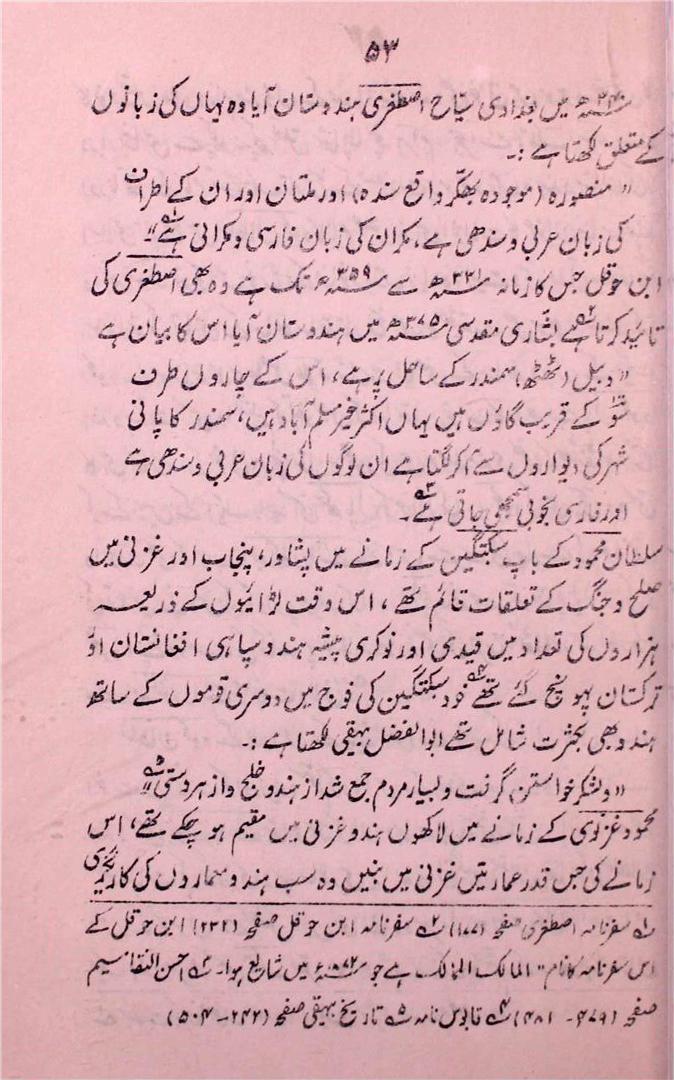 ۵۳
۳۴۰ھ میں بغدادی سیّاح اصطفری ہندوستان آیا وہ یہاں کی زبانوں
کے متعلق لکھتا ہے :۔
" منصورہ (موجودہ بھکّر واقع سندھ) اور ملتان اور ان کے اطراف
کی زبان عربی و سندھی ہے، مکران کی زبان فارسی و مکرانی ہے"
ابن حوقل جس کا زمانہ ۳۳۱ھ سے ۳۵۹ھ تک ہے وہ بھی اصطفری کی
تائید کرتا ہے بشّاری مقدسی ۳۷۵ھ میں ہندوستان آیا اس کا بیان ہے
" دیبل (ٹھٹھہ) سمندر کے ساحل پر ہے، اس کے چاروں طرف
سَو کے قریب گاؤں ہیں یہاں اکثر غیر مسلم آباد ہیں، سمندر کا پانی
شہر کی دیواروں سے آکر لگتا ہے ان لوگوں کی زبان عربی و سندھی ہے
اور فارسی بخوبی سمجھی جاتی ہے۔
سلطان محمود کے باپ سبکتگین کے زمانے میں پشاور، پنجاب اور غزنی میں
صلح و جنگ کے تعلقات قائم تھے، اس وقت لڑائیوں کے ذریعہ
ہزاروں کی تعداد میں قیدی اور نوکری پیشہ ہندو سپاہی افغانستان اور
ترکستان پہونچ گئے تھے خود سبکتگین کی فوج میں دوسری قوموں کے ساتھ
ہندو بھی بکثرت شامل تھے ابوالفضل بہیقی لکھتا ہے :۔
" ولشکر خواستن گرفت و بسیار مردم جمع شد از ہند و خلج و از ہر دستی"
محمود غزنوی کے زمانے میں لاکھوں ہندو غزنی میں مقیم ہو چکے تھے، اس
زمانے کی جس قدر عمارتیں غزنی میں بنیں وہ سب ہندو معماروں کی کاریگری
۱؎ سفرنامہ اصطفری صفحہ (۱۷۷) ۲؎ سفرنامہ ابن حوقل صفحہ (۲۳۲) ابن حوقل کے
اس سفرنامہ کا نام "المالک الممالک ہے جو ۱۸۷۲ء میں شایع ہوا۔ ۳؎ احسن التقاسیم
صفحہ (۴۷۹۔ ۴۸۱) ۴؎ قابوس نامہ ۵؎ تاریخ بہیقی صفحہ (۲۴۲۔ ۵۰۴)